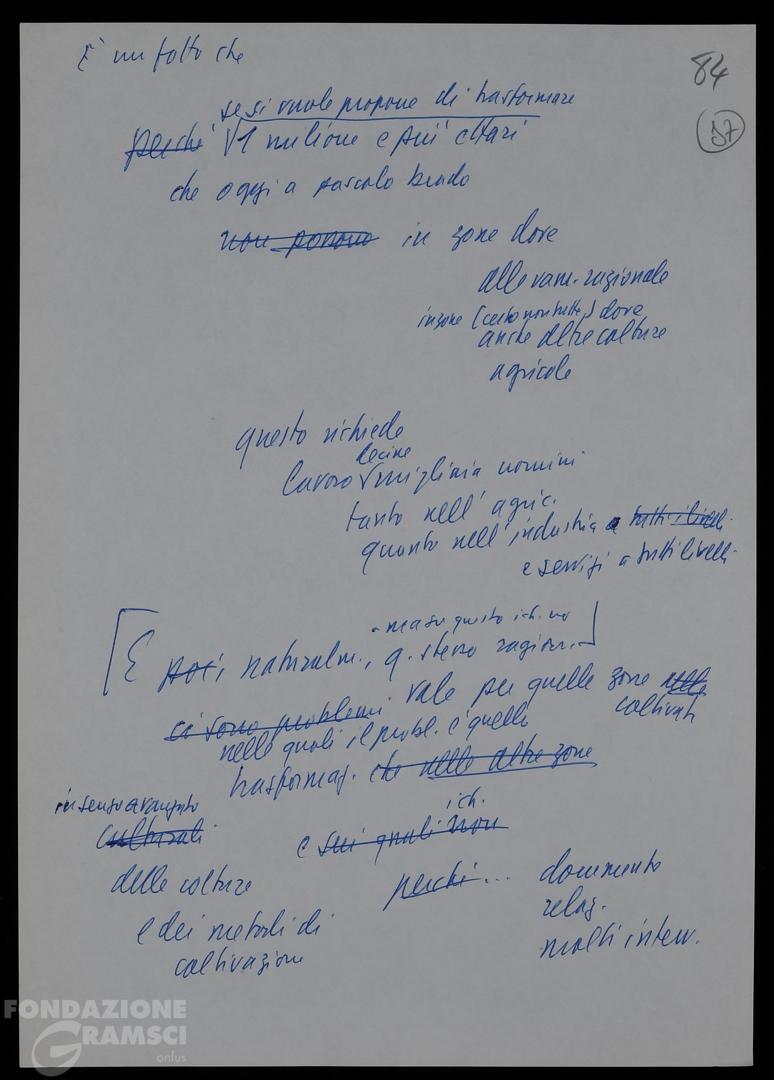 È un fatto che
84
37
se si vuole propone di trasformare
perché 1 milione e più ettari
che oggi a pascolo brado
non possono in zone dove
allevam. razionale
in zone (certo non tutte) dove
anche altre colture
agricole
questo richiede
decine
lavoro migliaia uomini
tanto nell'agric.
quanto nell'industria e tutti i livelli.
e servizi a tutti livelli.
- ma su questo ieri. no
[E poi, naturalm., q. stesso ragion.]
ci sono problemi vale per quelle zone nelle
coltivate
nelle quali il probl. è quello
trasformaz. che nelle altre zone
in senso avanzato
culturali
e sui quali non
delle colture
perché... documento
relaz.
e dei metodi di
molti interv.
coltivazione